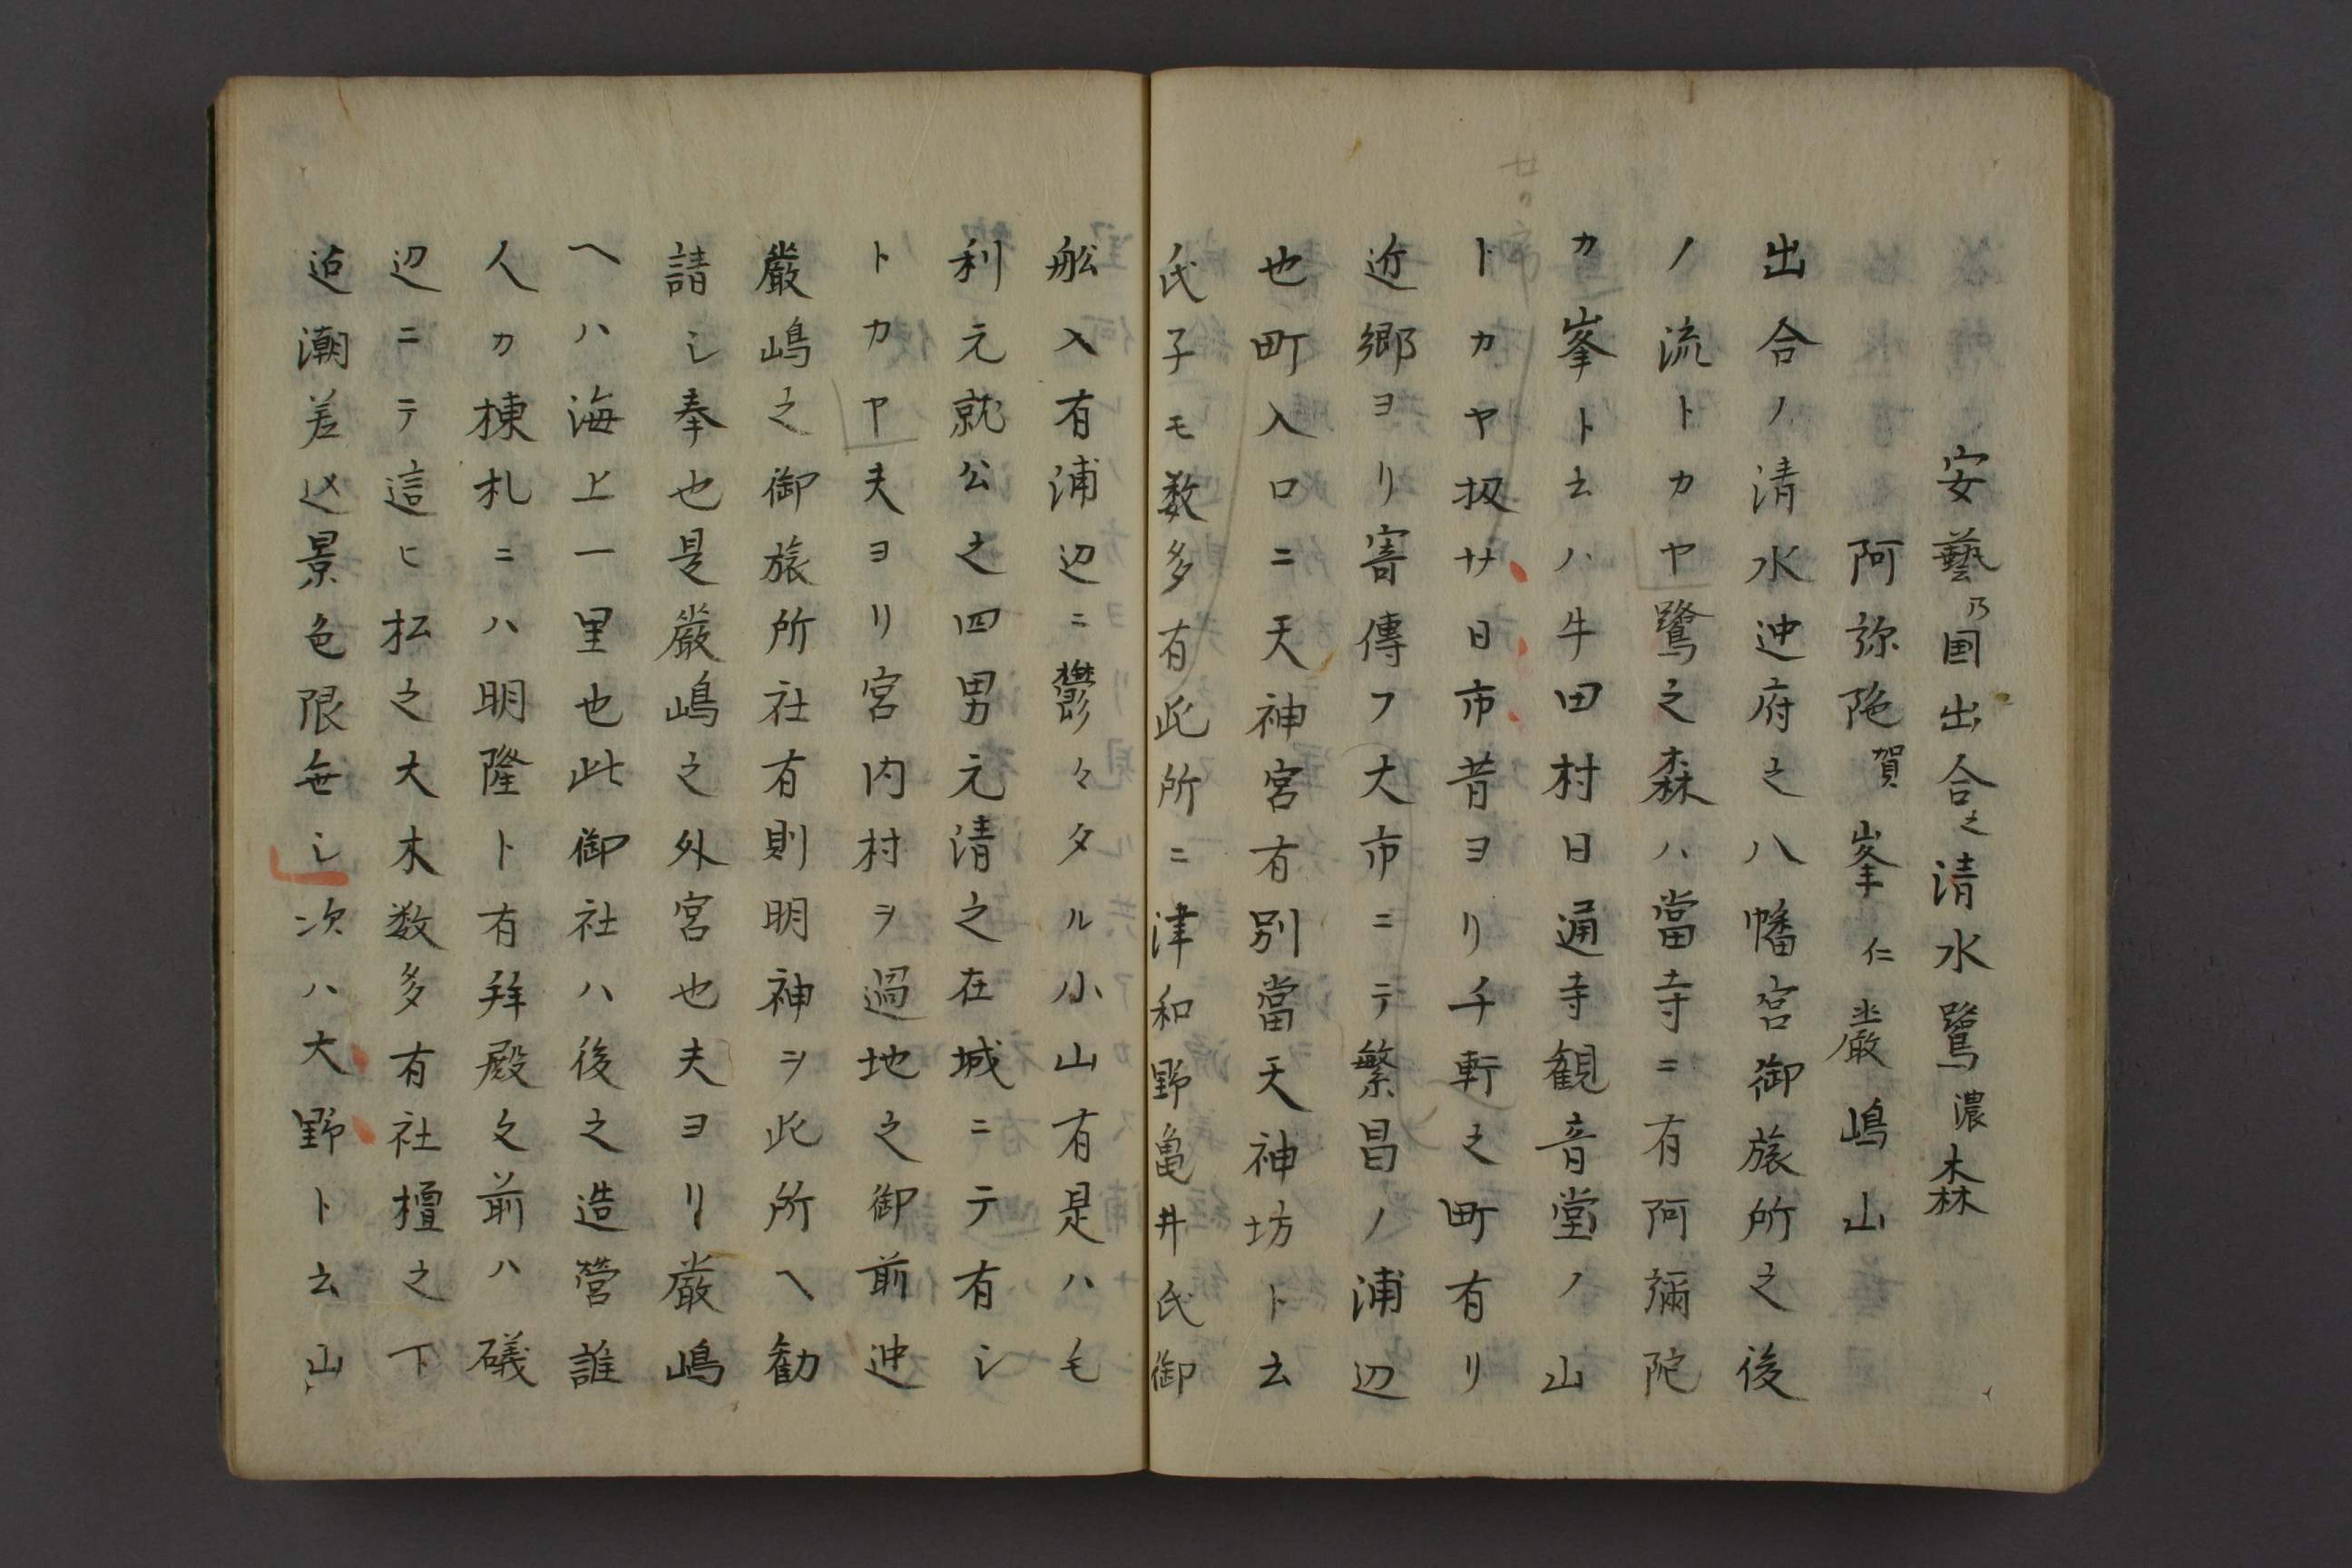 安藝乃国出合之清水鷺濃森
阿弥陀賀峯仁厳嶋山
出合ノ清水迚府之八幡宮御旅所之後
ノ流トカヤ鷺之森ハ當寺ニ有阿彌陀
カ峯ト云ハ牛田村日通寺観音堂ノ山
トカヤ扨廿日市昔ヨリ千軒之町有リ
近郷ヨリ寄傳フ大市ニテ繁昌ノ浦辺
也町入口ニ天神宮有別當天神坊ト云
氏子モ数多有此所ニ津和野亀井氏御
舩入有浦辺ニ欝々タル小山有是ハ毛
利元就公之四男元清之在城ニテ有シ
トカヤ夫ヨリ宮内村ヲ過地之御前迚
嚴嶋之御旅所社有則明神ヲ此所ヘ勧
請シ奉也是嚴嶋之外宮也夫ヨリ嚴嶋
ヘハ海上一里也此御社ハ後之造營誰
人カ棟札ニハ明隆ト有拜殿之前ハ礒
辺ニテ這ヒ松之大木数多有社檀之下
迠潮差込景色限無シ次ハ大野ト云山
廿日市